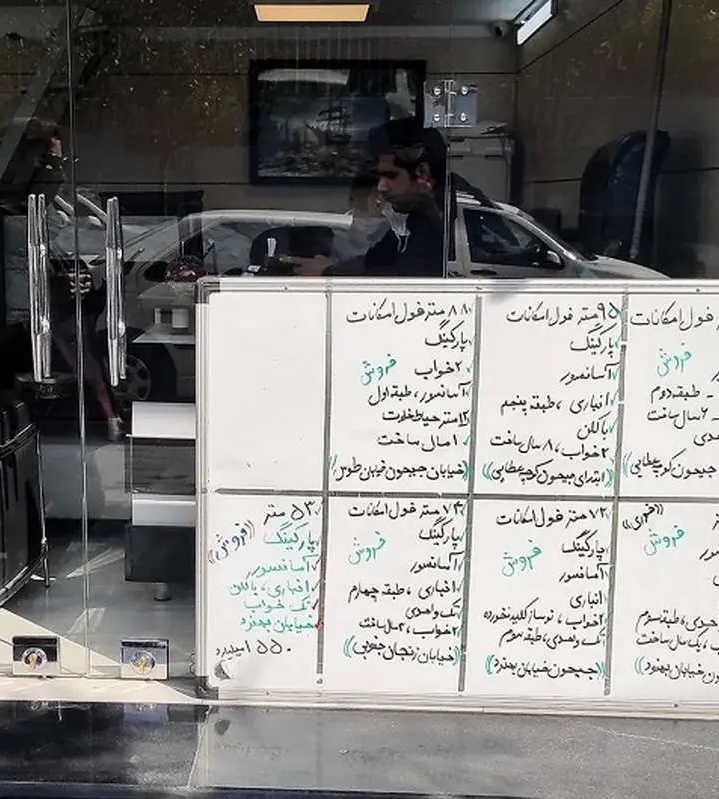 فول امکانات
فروش
طبقه دوم
۶ سال ساخت
جیحون کوچه عطایی))
۹۵ متر فول امکانات
پارکینگ
آسانسور
انباری، طبقه پنجم
بالکن
۲خواب، ۸ سال ساخت
((ابتدای جیحون کوچه عطایی))
۸۸ متر فول امکانات
پارکینگ
۲خواب فروش
آسانسور، طبقه اول
۱۲ متر حیاط خلوت
۱ سال ساخت
((خیابان جیحون خیابان طوس))
((فوری))
فروش
طبقه سوم
یک سال ساخت
خیابان بهنود))
۷۲ متر فول امکانات
پارکینگ
فروش
آسانسور
انباری
۲خواب، نوساز کلید نخورده
تک واحدی، طبقه سوم
((جیحون خیابان بهنود))
۷۴ متر فول امکانات
پارکینگ
فروش
آسانسور
انباری، طبقه چهارم
تک واحدی
۲خواب، ۲ سال ساخت
((خیابان زنجان جنوبی))
۵۳ متر
پارکینگ ((فروش))
آسانسور
انباری، بالکن
تک خواب
خیابان بهنود
۱۵۵۰ میلیارد